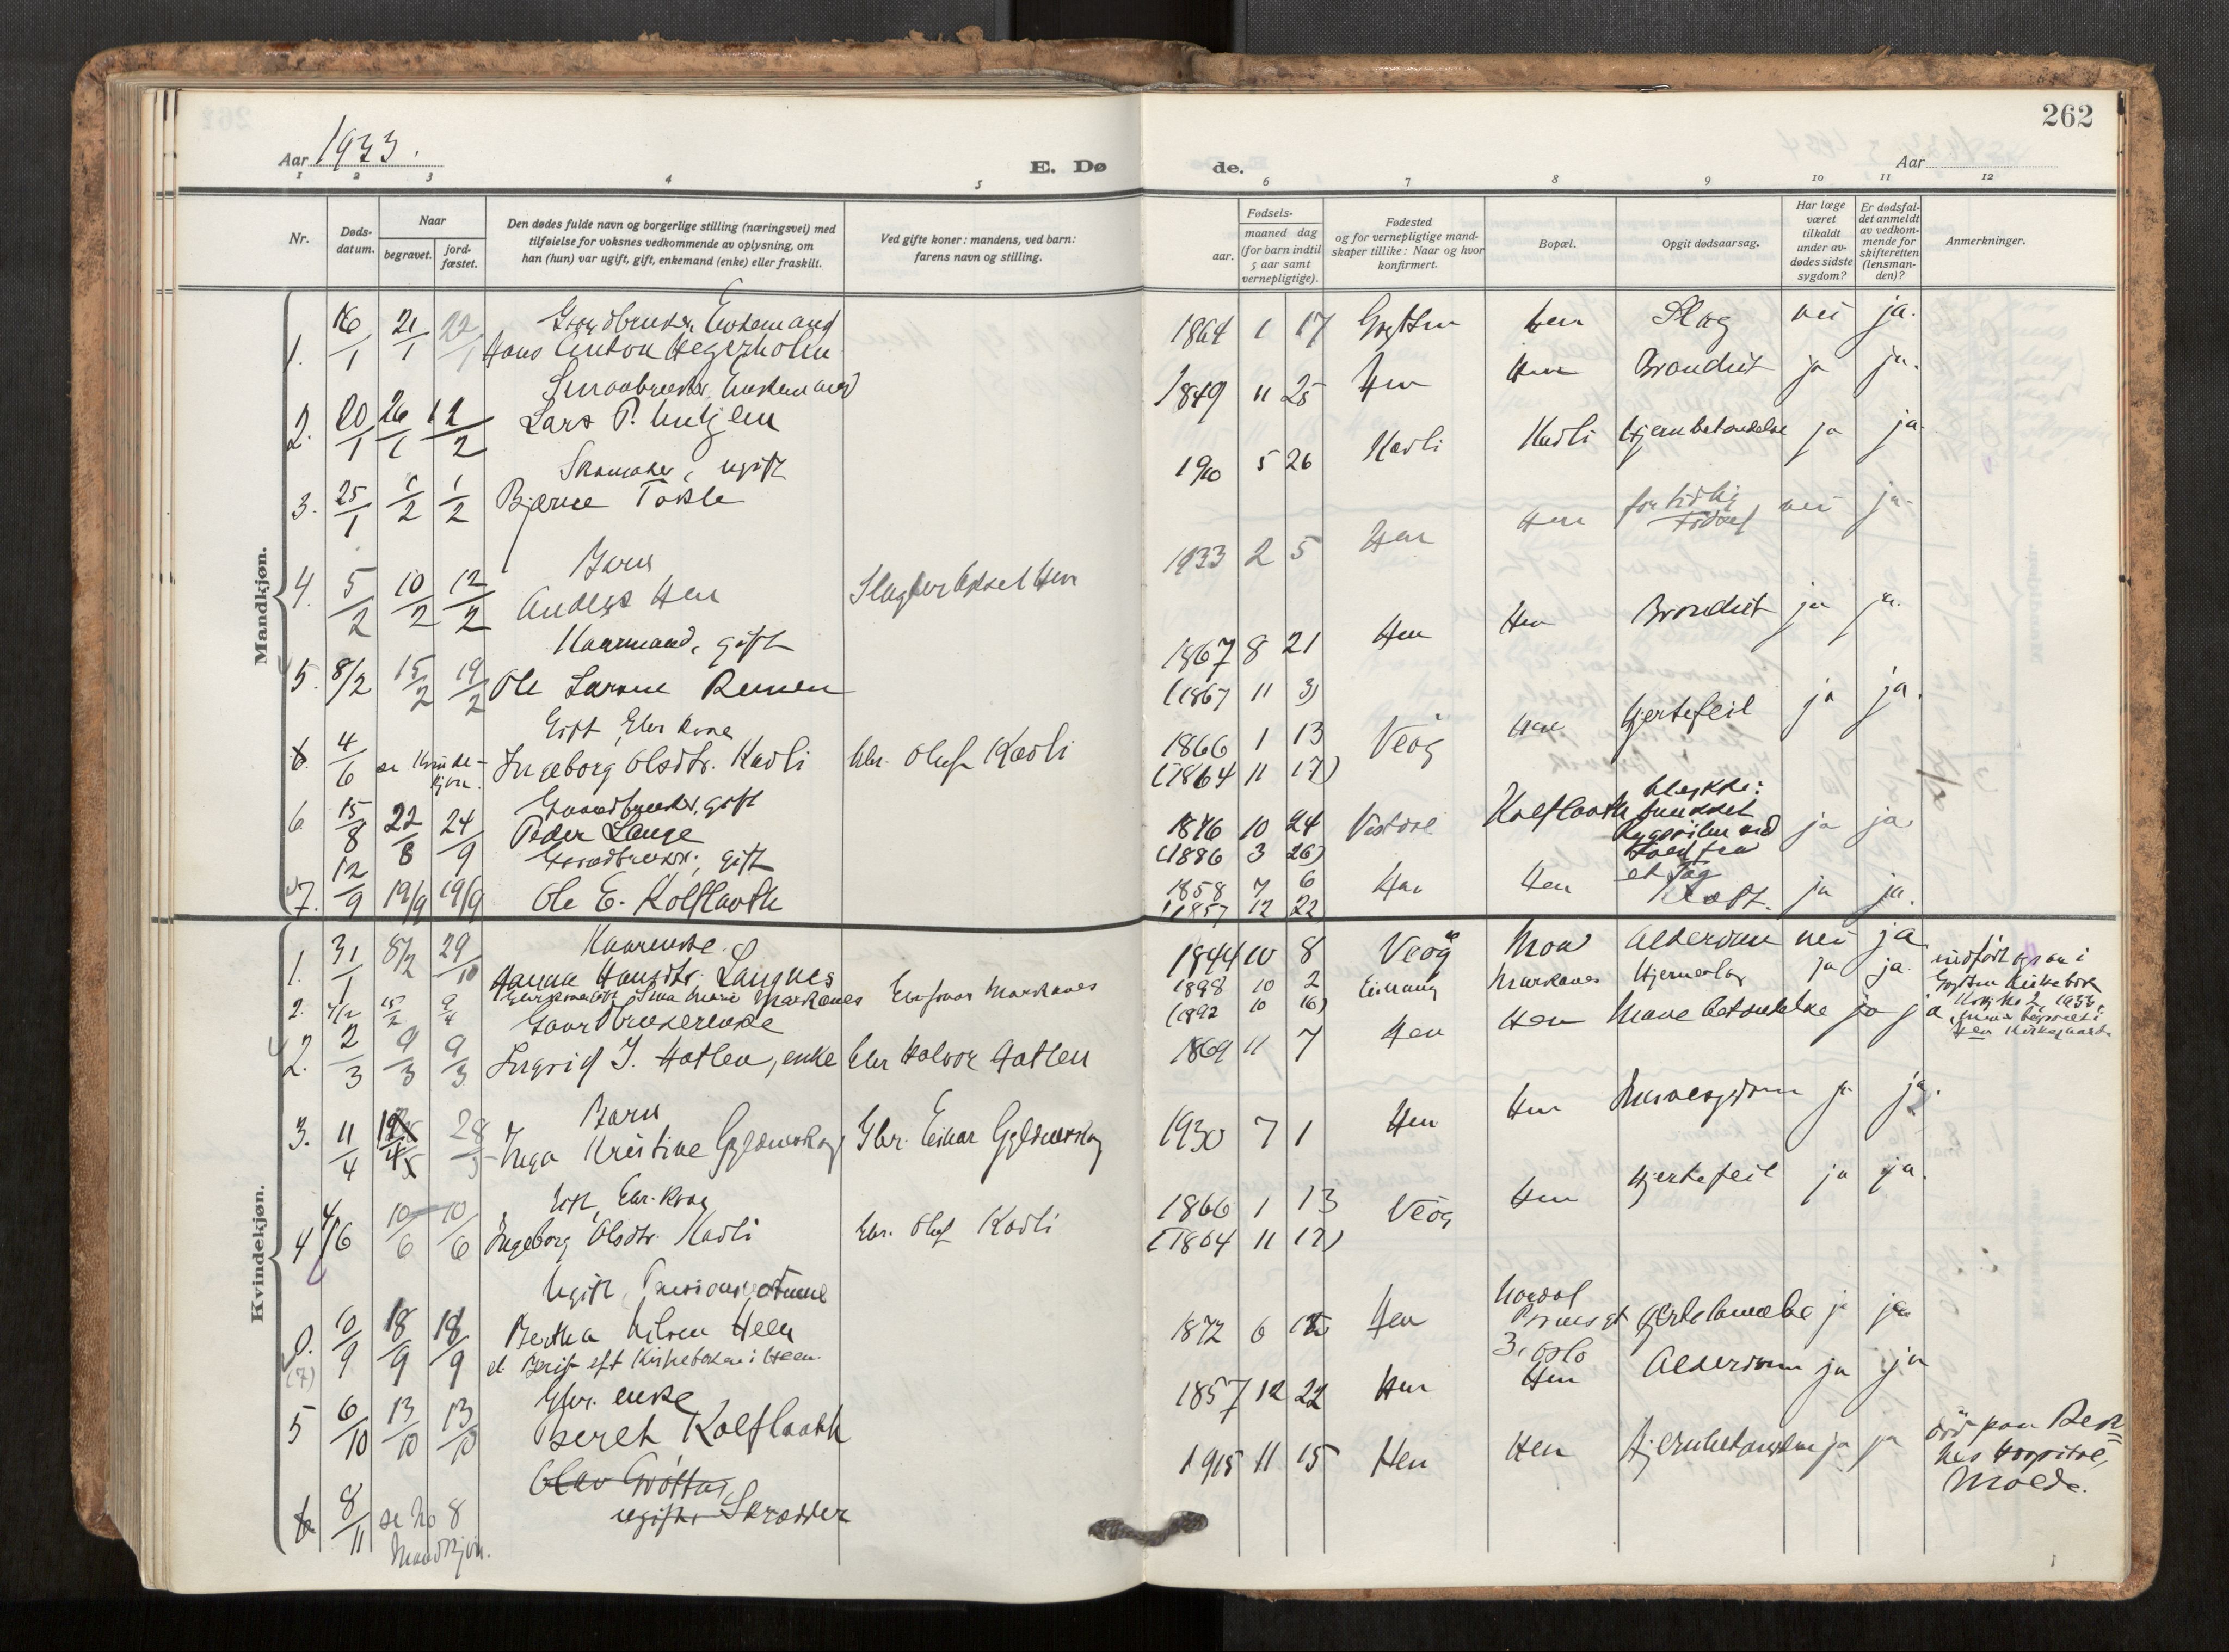 262
Aar 1933.
E. Dø
de.
Aar
1 2 3 4 5 6 7 8 9 10 11 12
Nr.
Døds-
datum.
Naar
begravet.
jord-
fæstet.
Den dødes fulde navn og borgerlige stilling (næringsvei) med
tilføielse for voksnes vedkommende av oplysning, om
han (hun) var ugift, gift, enkemand (enke) eller fraskilt.
Ved gifte koner: mandens, ved barn:
farens navn og stilling.
aar.
Fødsels-
maaned dag
(for barn indtil
5 aar samt
vernepligtige).
Fødested
og for vernepligtige mand-
skaper tillike: Naar og hvor
konfirmert.
Bopæl.
Opgit dødsaarsag.
Har læge
været
tilkaldt
under av-
dødes sidste
sygdom?
Er dødsfal-
det anmeldt
av vedkom-
mende for
skifteretten
(lensman-
den)?
Anmerkninger.
Mandkjøn.
Gaardbruker, Enkemand
1. 16/1 21/1 22/1 Hans Anton Hegerholm 1864 1 17 Grytten Hen Slag nei ja.
Smaabruker, Enkemand
2. 20/1 26/1 12/2 Lars P. 1849 11 25 Hen Hen ja ja.
Skomaker, ugift
3. 25/1 1/2 1/2 Bjarne Tokle 1910 5 26 Kavli Kavli Hjernebetændelse ja ja.
Barn
4. 5/2 10/2 12/2 Anders Hen Slagter Aksel Hen 1933 2 5 Hen Hen for tidlig født nei ja.
Kaarmand, gift
5. 8/2 15/2 19/2 Ole Larsen Remen 1867 8 21 Hen Hen ja ja.
(1867 11 3)
Gift, Ebr kone
6. 4/6 se Kvinde-
kjøn. Ingeborg Olsdtr. Kavli Ebr. Oluf Kavli 1866 1 13 Veøy Hen Hjertefeil ja ja.
(1864 11 17)
Gaardbruker, gift
6 15/8 22/8 24/9 Peder Lange 1876 10 24 Vestdal Kolflaath ulykke: ja ja
(1886 3 26)
et tag
Gaardbruker, gift
7. 12/9 19/9 19/9 Ole E. Kolflaath 1858 7 6 Hen Hen Kræft. ja ja.
(1857 12 22
Kvindekjøn.
Kaarenke.
1. 31/1 8/2 29/10 Hanna Hansdtr. Langnes 1844 10 8 Veøy Moa Alderdom nei ja
2. 4/2 15/2 9/4 Marie Markanes Markanes 1898 10 2 Eisvaag Markanes Hjerneslag ja ja. indført ogsaa i
(1892 10 16) Grytten Kirkebok
Gaardbrukerenke
1933.
Hen Kirkegaard.
2. 2/3 9/3 9/3 Ingrid J. Hatlen, enke Ebr Halvor Hatlen 1869 11 7 Hen Hen Mavebetændelse ja ja
Barn
3. 11/4 28/5 Inga Kristine Gyldenskog Gbr. Einar Gyldenskog 1930 7 1 Hen Hen ja ja.
Gift, Ebr. kone
4 4/6 10/6 10/6 Ingeborg Olsdtr. Kavli Ebr. Oluf Kavli 1866 1 13 Veøy Hen Hjertefeil ja ja.
(1864 11 17)
Ugift,
10/9 18/9 18/9 Bertha Nilsen Heen 1872 6 Hen 3, Oslo Hjertelammelse ja ja
(7) Kirkebøkene i Heen.
Gbr. enke
5 6/10 13/10 13/10 Beret Kolflaath 1857 12 22 Hen Hen Alderdom ja ja
Olav Grøttas
6 8/11 se No 8
Mandkjøn. ugift Skrædder 1915 11 15 Hen Hen Hjernebetændelse ja ja død paa Rek-
nes Hospital,
Molde.